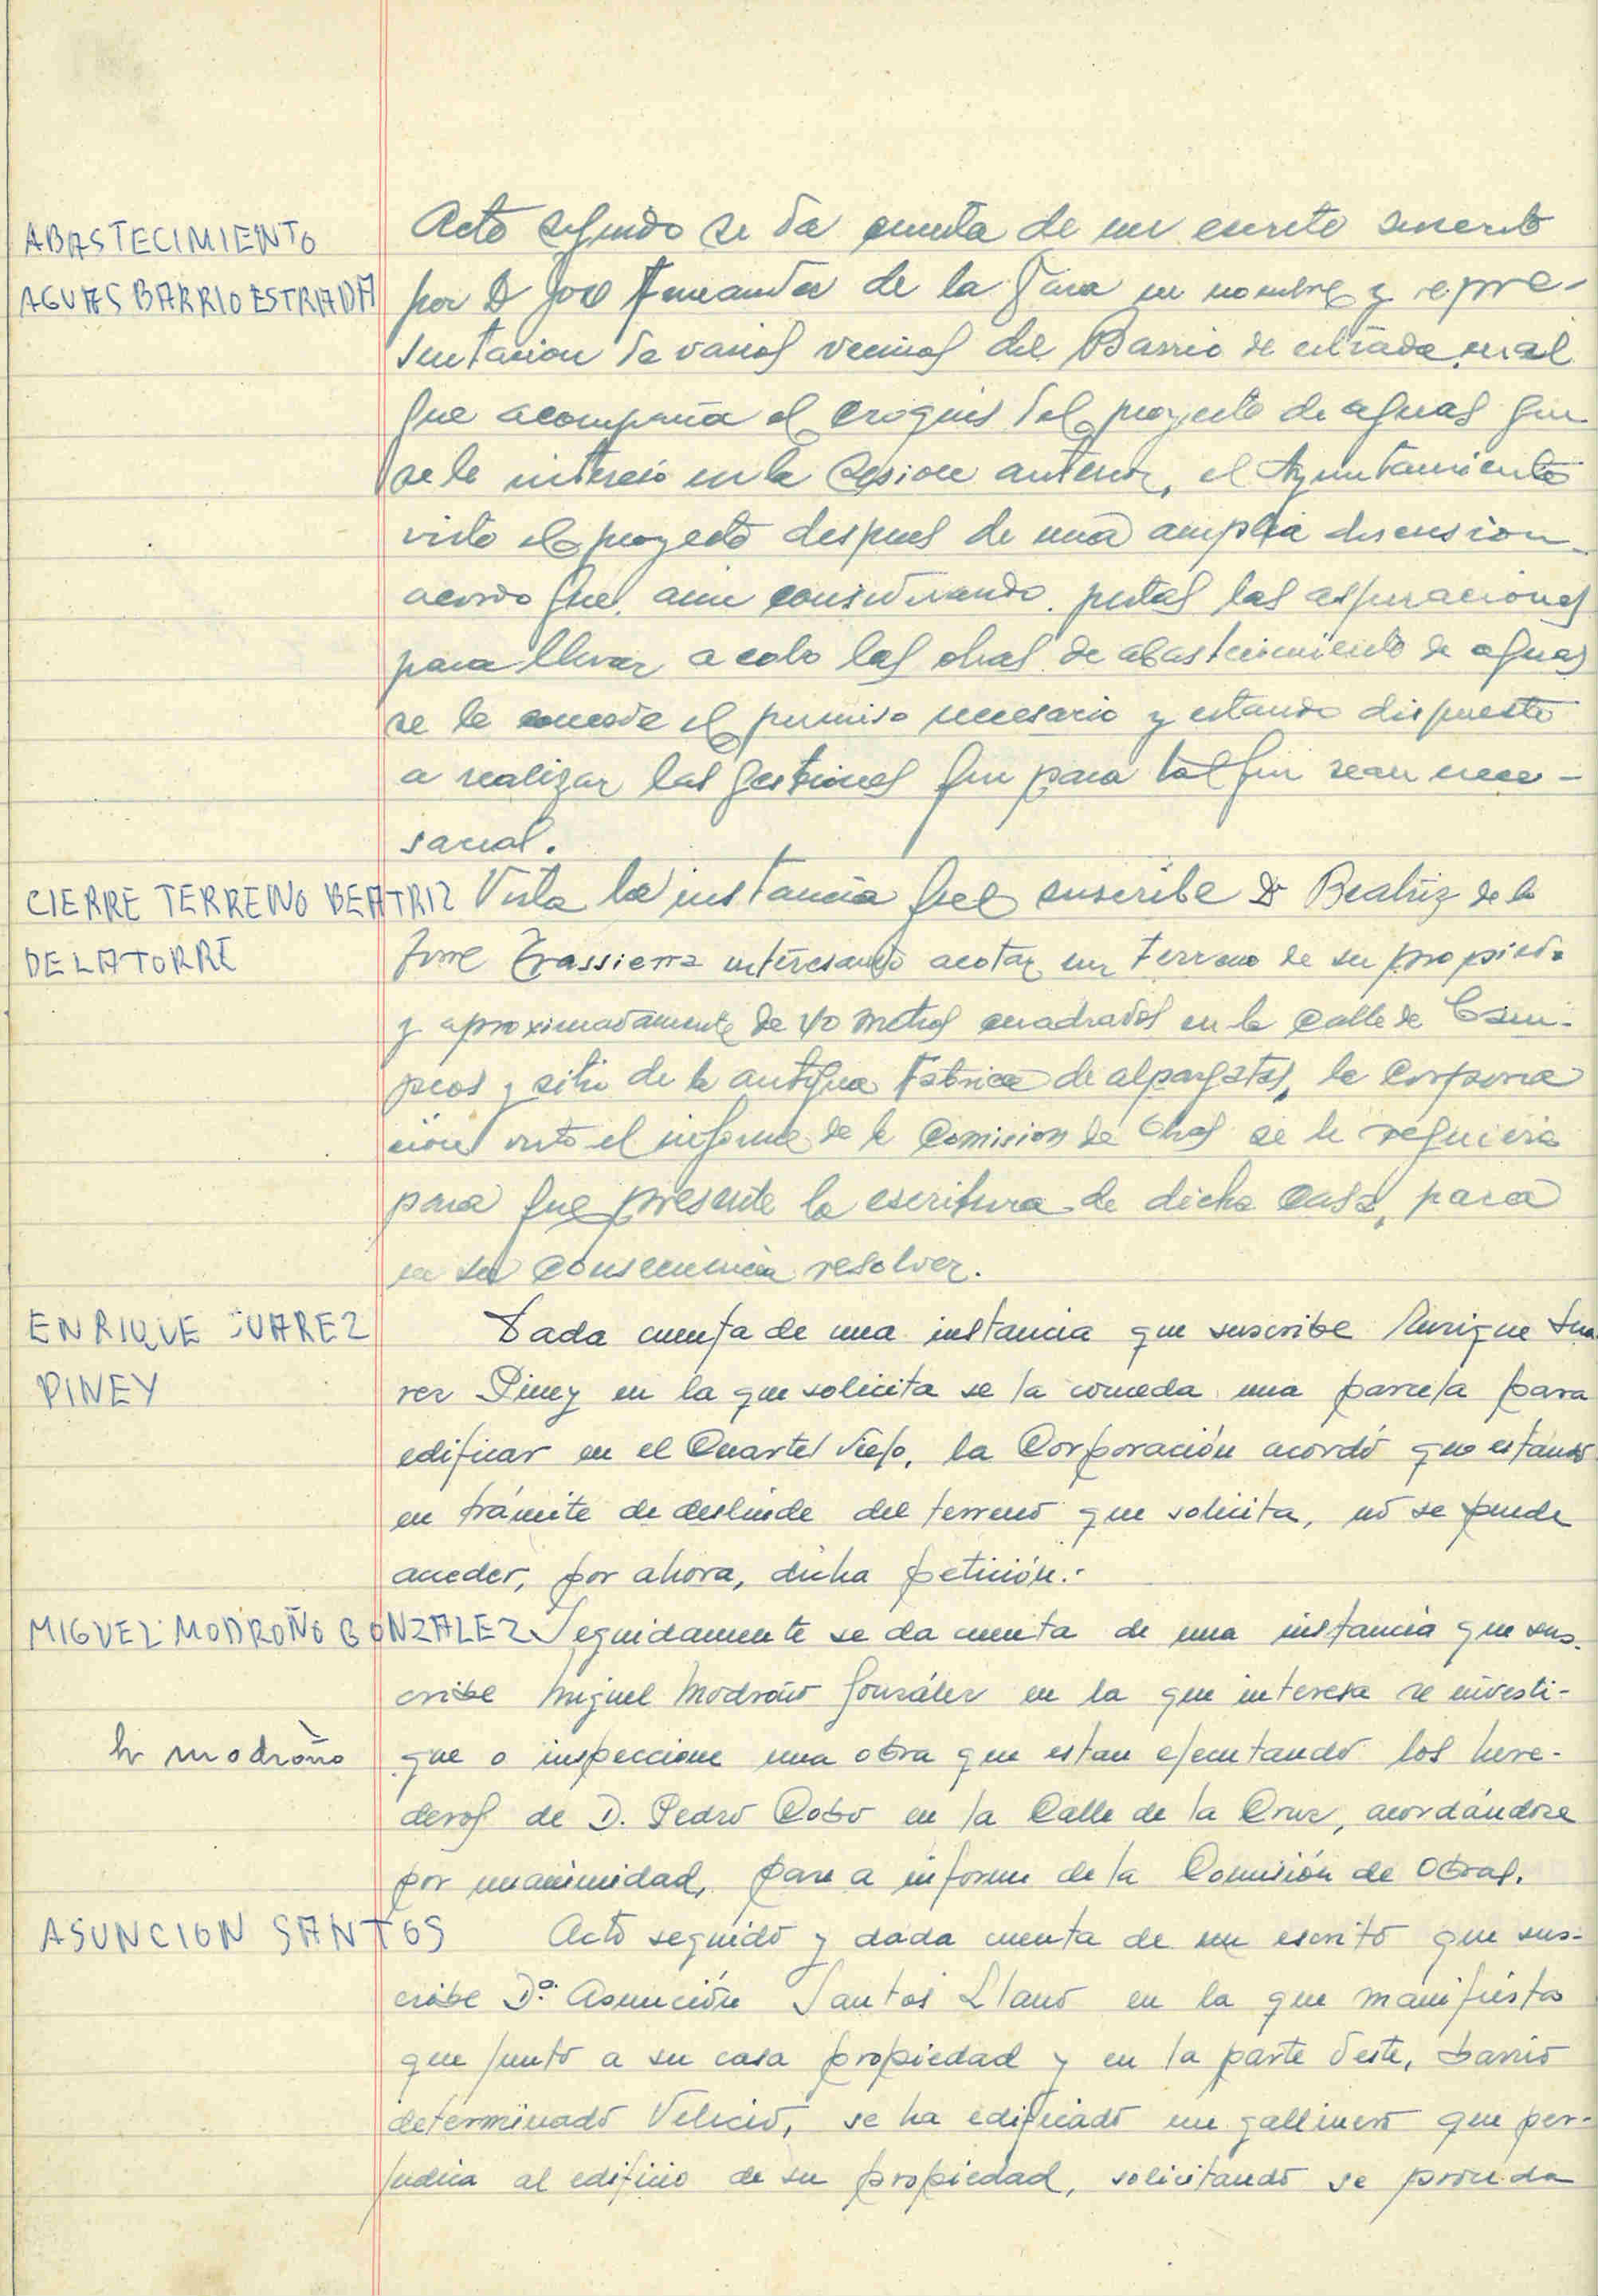 ABASTECIMIENTO
AGUAS BARRIO ESTRADA
Acto seguido se da cuenta de un escrito suscrito
por D José Fernandez de la en nombre y repre-
sentacion de varios vecinos del Barrio de estrada, en al
que acompaña el croquis del proyecto de aguas que
se le intereso en la Sesion anterior, el Ayuntamiento
visto el proyecto despues de una amplia discusion
acordo que, aun considerando justas las aspiraciones
para llevar a cabo las obras de abastecimiento de aguas
se le concede el permiso necesario y estando dispuesto
a realizar las gestiones que para tal fin sean nece-
sarias.
CIERRE TERRENO BEATRIZ
DE LA TORRE
Vista la instancia que suscribe Dª Beatriz de la
Torre Trassierra interesando acotar un terreno de su propied.
y aproximadamente de 40 metros cuadrados en la calle de Cam-
peos y sitio de la antigua Fabrica de alpargatas, la Corpora
cion visto el informe de la Comision de Obras se le requiera
para que presente la escritura de dicha casa, para
en su consecuencia resolver.
ENRIQUE SUAREZ
PINEY
Dada cuenta de una instancia que suscribe Enrique Sua
rez Piney en la que solicita se la conceda una parcela para
edificar en el Cuartel Viejo, la Corporación acordó que estando
en trámite de deslinde del terreno que solicita, no se puede
acceder, por ahora, dicha petición.-
MIGUEL MODROÑO GONZALEZ
Seguidamente se da cuenta de una instancia que sus-
cribe Miguel Modroño González en la que interesa se investi-
h modroño
gue o inspeccione una obra que estan ejecutando los here-
deros de D. Pedro Cobo en la Calle de la Cruz, acordándose
por unanimidad, pase a informe de la Comisión de Obras.
ASUNCION SANTOS
Acto seguido y dada cuenta de un escrito que sus-
cribe Dª. Asunción Santos Llano en la que manifiesta
que junto a su casa propiedad y en la parte Oeste, barrio
determinado Velecio, se ha edificado un gallinero que per-
judica al edificio de su propiedad, solicitando se proceda